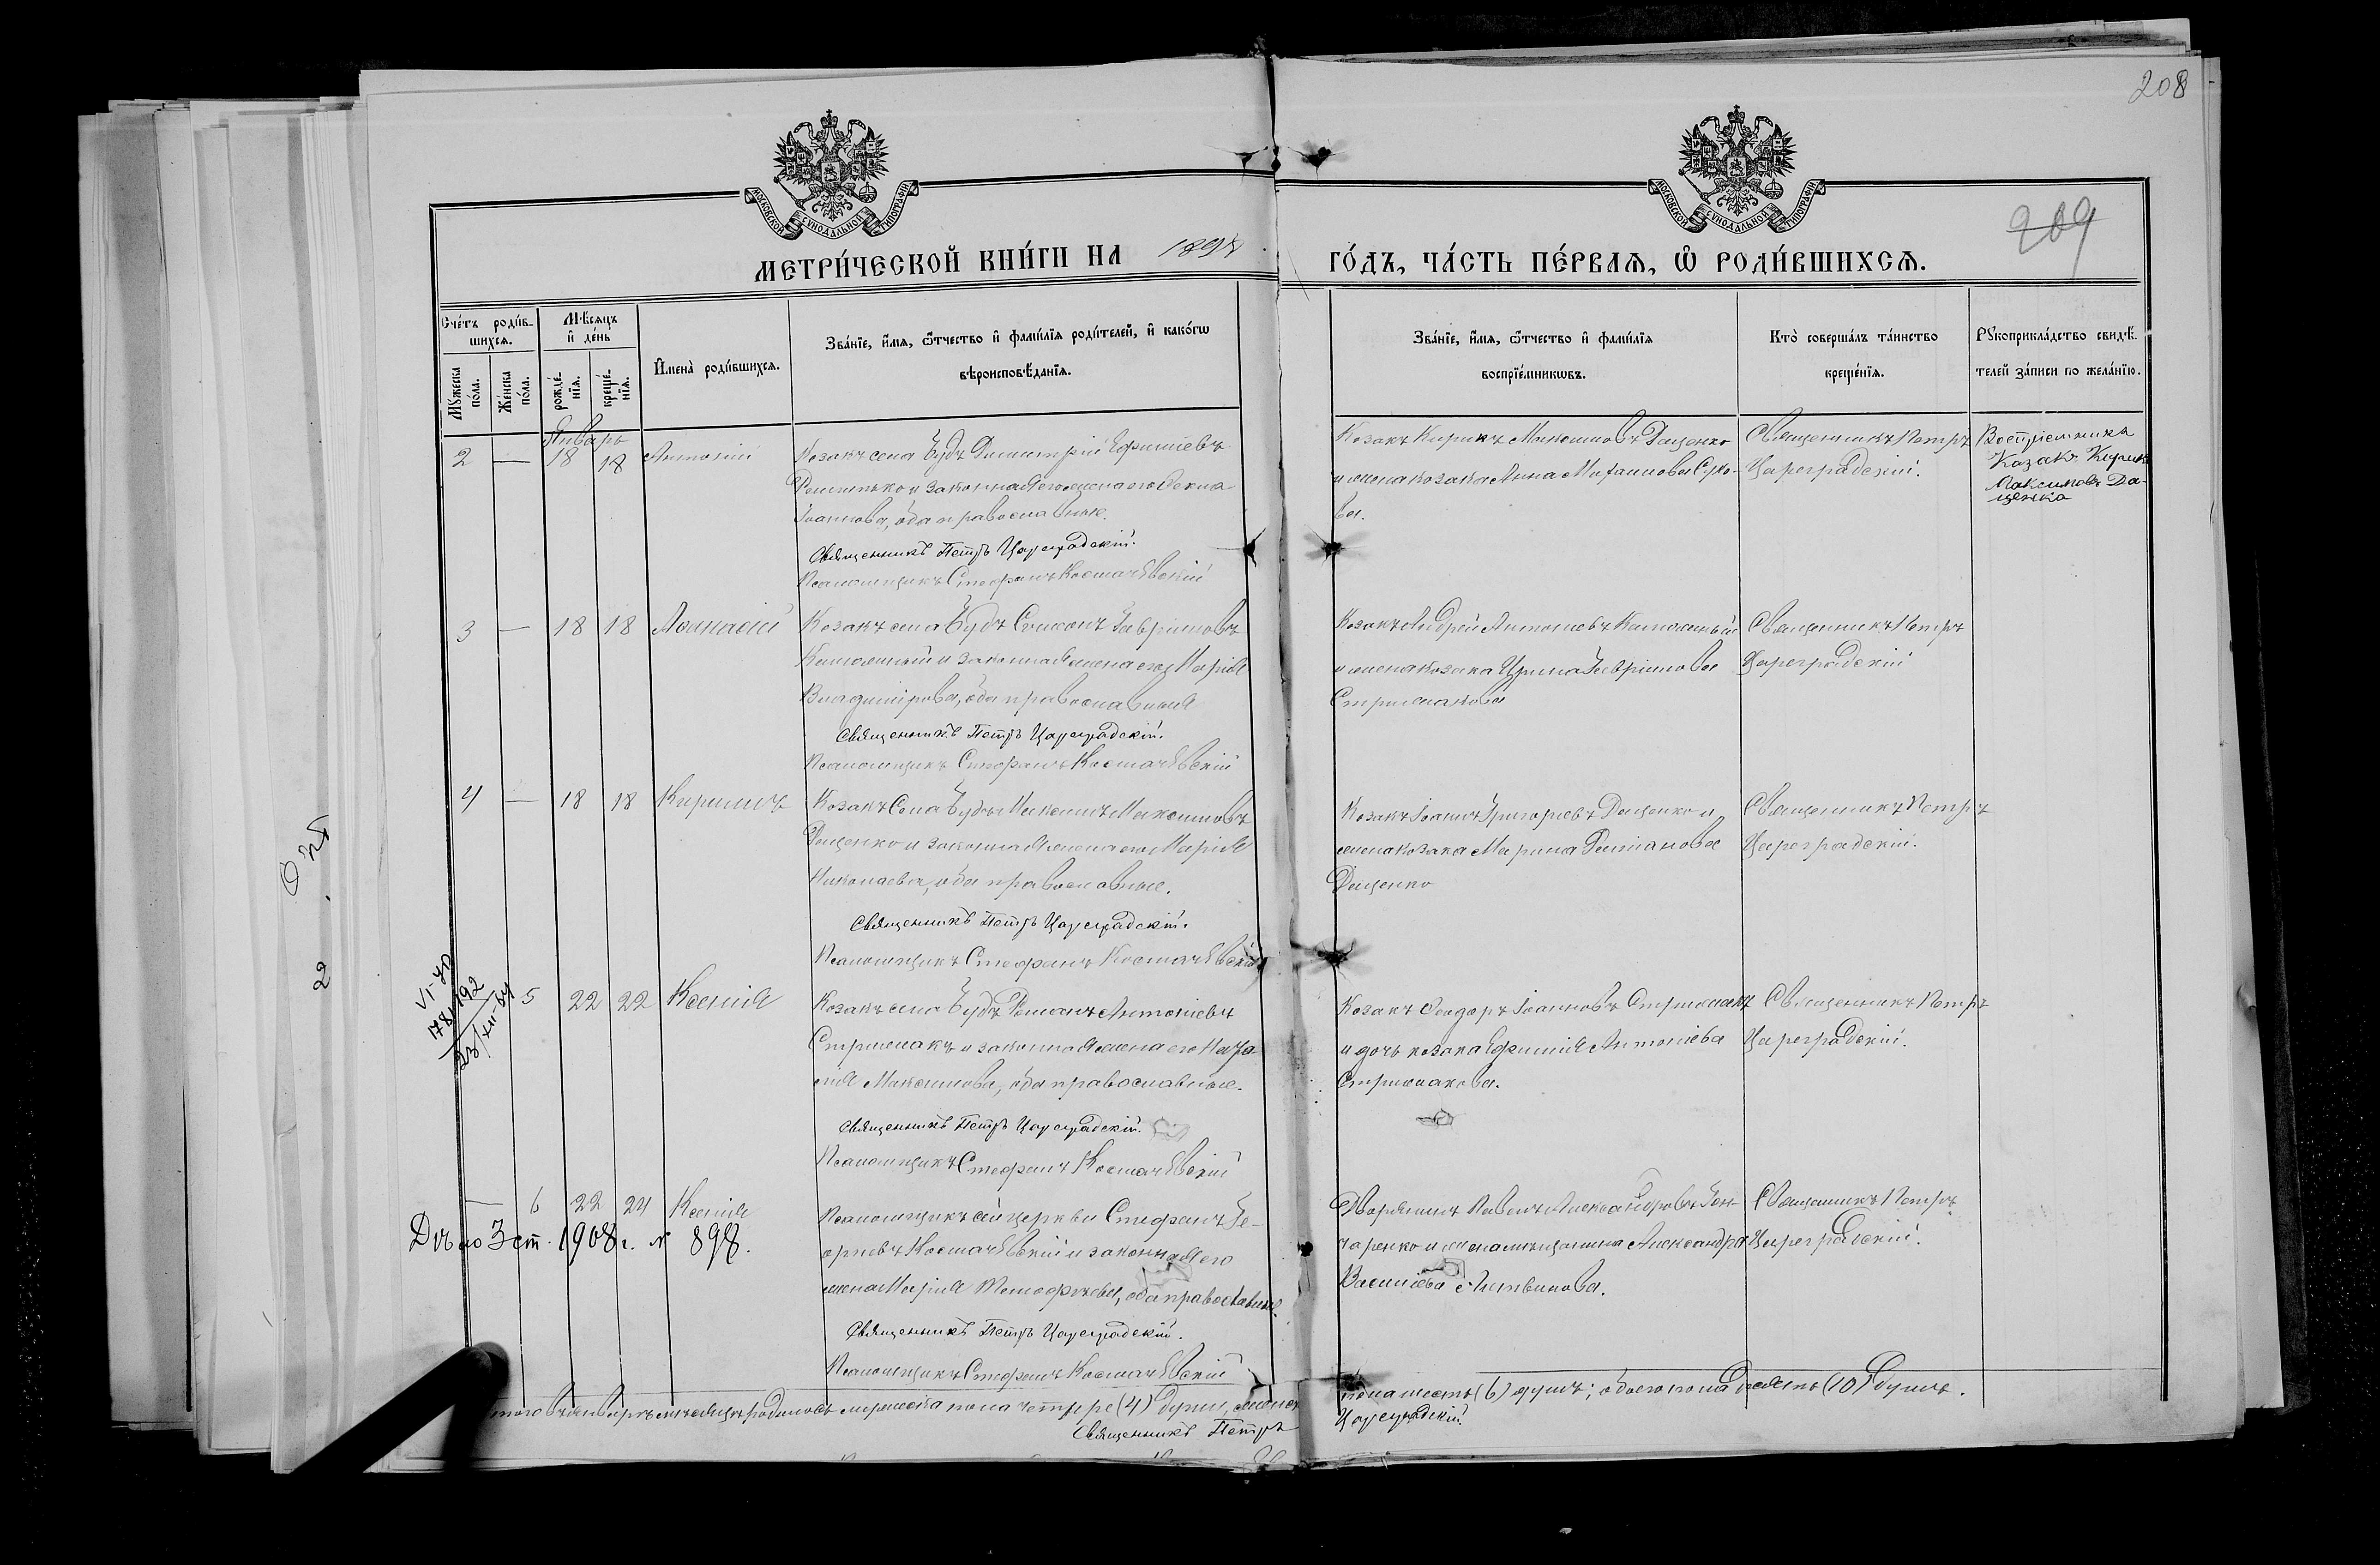 208
209
МОСКОВСКОЙ СѴНОДАЛЬНОЙ ТИПОГРАФІИ
МОСКОВСКОЙ СѴНОДАЛЬНОЙ ТИПОГРАФІИ
МЕТРИ́ЧЕСКОЙ КНИ́ГИ НА
ГО́ДЪ, ЧА́СТЬ ПЕ́РВАѦ, Ѡ҆ РОДИ́ВШИХСѦ.
Сче́тъ роди́в-
шихсѧ.
Мꙋжеска
по́ла.
Же́нска
по́ла.
Мѣ́сѧцъ
и҆ де́нь
рожде́-
нїѧ.
креще́-
нїѧ.
И҆мена̀ роди́вшихсѧ.
Зва́нїе, и҆́мѧ, ѻ҆́тчество и҆ фами́лїѧ роди́телей, и҆ како́гѡ
вѣроисповѣ́данїѧ.
Зва́нїе, и҆́мѧ, ѻ҆́тчество и҆ фами́лїѧ
воспрїе́мникѡвъ.
Кто̀ соверша́лъ та́инство
креще́нїѧ.
Рꙋкоприкла́дство свидѣ́-
телей за́писи по жела́нїю.
Январь
2 — 18 18 Антоній
Козакъ села Будъ Димитрій Ефиміевъ
и законная жена его
Іоаннова, оба православные.
Священникъ Петръ Цареградскій.
Псаломщикъ Стефанъ Костачевскій
Козакъ Кирикъ Максимовъ Даценко
и жена козака Анна
ва.
Священникъ Петръ
Цареградскій.
Воспріемникъ
Казакъ Кирикъ
Максимовъ Да-
ценка
3 — 18 18 Афанасій
Козакъ села Будъ Симонъ Гавріиловъ
и законная жена его Марія
Владимірова, оба православныя
Священникъ Петръ Цареградскій.
Псаломщикъ Стефанъ Костачевскій
Козакъ Андрей Антоніевъ
и жена козака Ирина Гавріилова
Стрижакова
Священникъ Петръ
Цареградскій
4 — 18 18 Кириллъ
Козакъ села Будъ Максимъ Максимовъ
Даценко и законная жена его Марія
Николаева, оба православные.
Священникъ Петръ Цареградскій.
Псаломщикъ Стефанъ Костачевскій
Козакъ Іоаннъ Григорьевъ Даценко и
жена козака Марина
Даценко
Священникъ Петръ
Цареградскій.
5 22 22 Ксенія
Козакъ села Будъ Романъ Антоніевъ
Стрижакъ и законная жена его Ната-
лія Максимова, оба православные.
Священникъ Петръ Цареградскій.
Псаломщикъ Стефанъ Костачевскій
Козакъ Феодоръ Іоанновъ Стрижакъ
и дочь козака Ефимія Антоніева
Стрижакова.
Священникъ Петръ
Цареградскій.
— 6 22 24 Ксенія
Дѣло 3 ст. 1908 г. № 898.
Псаломщикъ сей церкви Стефанъ Ге-
оргіевъ Костачевскій и законная его
жена Марія Тимофѣева, оба православные.
Священникъ Петръ Цареградскій.
Псаломщикъ Стефанъ Костачевскій
Дворянинъ Павелъ Александровъ Гон-
чаренко и жена мѣщанина Александра
Василіева Литвинова.
Священникъ Петръ
Цареградскій.
въ январѣ мѣсяцѣ родилось мужеска пола четыре (4) души, женск
пола шесть (6) душъ; обоего пола десять (10) душъ.
Священникъ Петръ
Цареградскій.